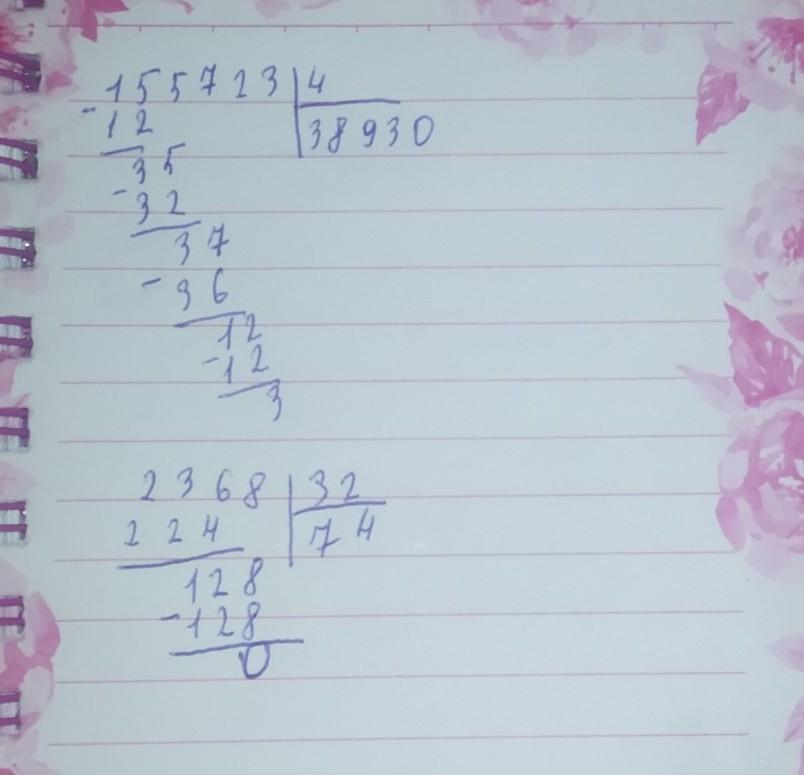 155723 4
- 12 38930
35
- 32
37
- 36
12
- 12
3
2368 32
224 74
128
- 128
0